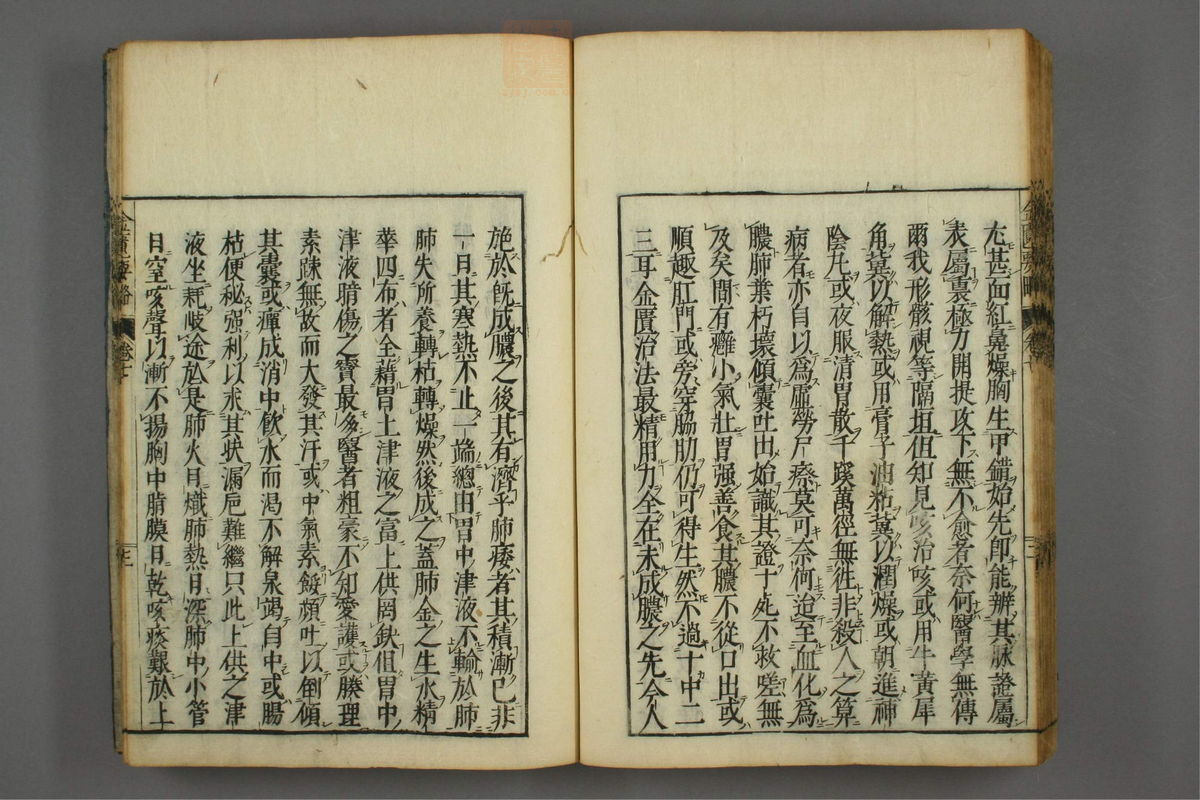 尢甚面紅鼻燥胸生甲錯始先卽能辨其脉證屬
表屬裏極力開提攻下無不愈者奈何醫學無傳
爾我形骸視等隔垣但知見咳治咳或用牛黃犀
角冀以解熱或用膏子油粘冀以潤燥或朝進神
陰凡或夜服清胃散千蹊萬徑無徃非殺人之算
病者亦自以爲虛勞尸瘵莫可奈何迨至血化爲
膿肺葉朽壞傾囊吐出始識其證十死不救嗟無
及矣間有癰小氣壯胃强善食其膿不從口出或
順趣肛門或旁穿脇肋仍可得生然不過十中二
三耳金匱治法最精用力全在未成膿之先今人
施於旣成膿之後其有濟乎肺痿者其積漸已非
一日其寒熱不止一端總由胃中津液不輸於肺
肺失所養轉枯轉燥然後成之蓋肺金之生水精
華四布者全藉胃土津液之富上供罔缺但胃中
津液暗傷之竇最多醫者粗豪不知愛護或腠理
素踈無故而大發其汗或中氣素餒頻吐以倒傾
其囊或癉成消中飮水而渴不解泉竭自中或腸
枯便秘强利以求其快漏巵難繼只此上供之津
液坐耗岐途於是肺火日熾肺熱日深肺中小管
日窒咳聲以漸不揚胸中脂膜日乾咳痰艱於上